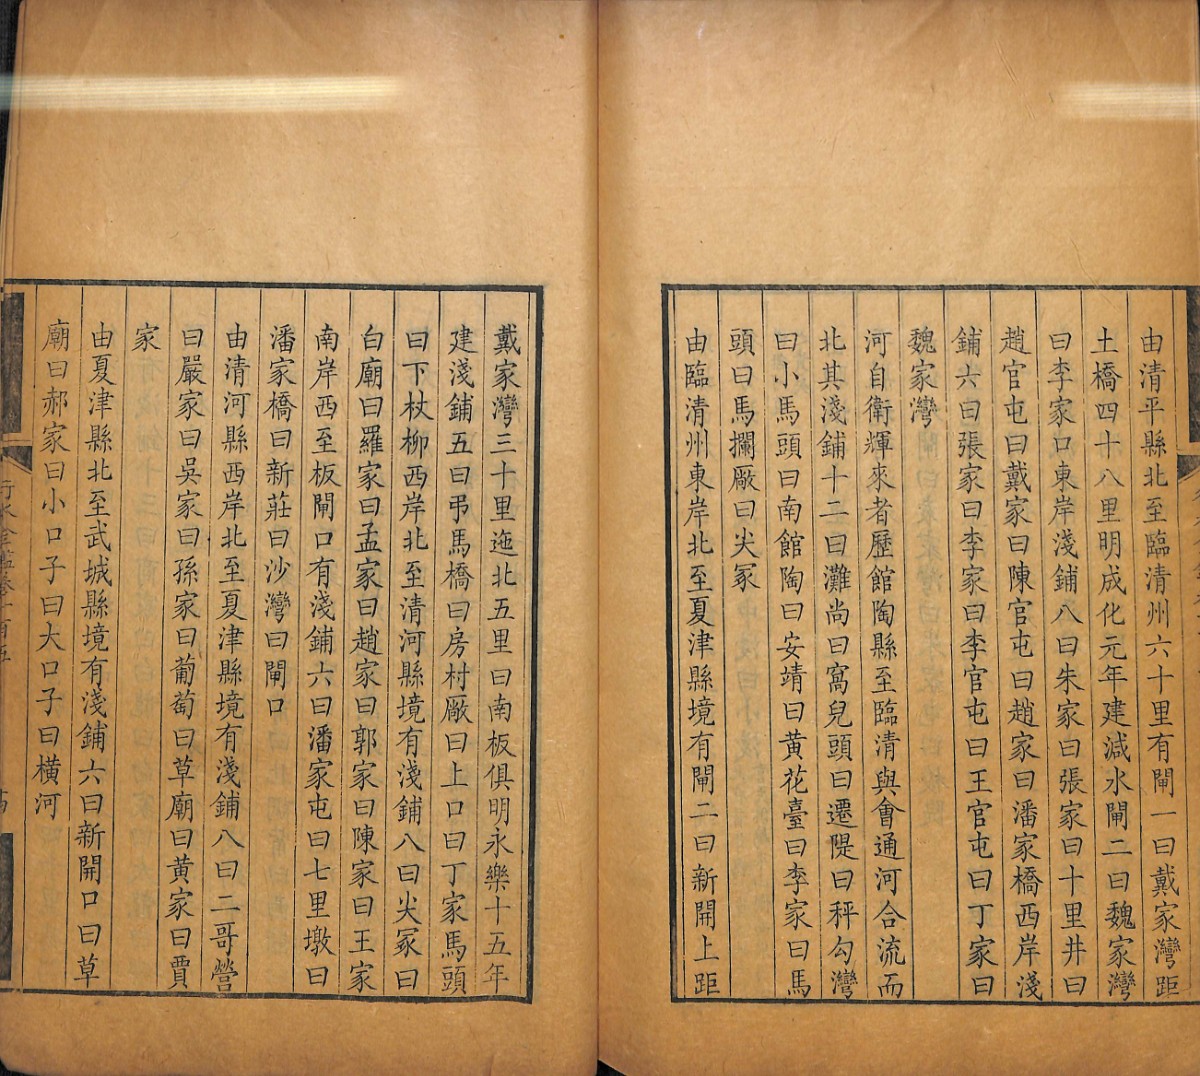 由清平縣北至臨清州六十里有閘一曰戴家灣距
土橋四十八里明成化元年建減水閘二曰魏家灣
曰李家口東岸淺鋪八曰朱家曰張家曰十里井曰
趙官屯曰戴家曰陳官屯曰趙家曰潘家橋西岸淺
鋪六曰張家曰李家曰李官屯曰王官屯曰丁家曰
魏家灣
河自衛輝來者歷館陶縣至臨清與會通河合流而
北其淺鋪十二曰灘尚曰窩兒頭曰遷隄曰秤勾灣
曰小馬頭曰南館陶曰安靖曰黄花臺曰李家曰馬
頭曰馬攔厰曰尖冢
由臨清州東岸北至夏津縣境有閘二曰新開上距
戴家灣三十里迤北五里曰南板俱明永樂十五年
建淺鋪五曰弔馬橋曰房村厰曰上口曰丁家馬頭
曰下杖柳西岸北至清河縣境有淺鋪八曰尖冢曰
白廟曰羅家曰孟家曰趙家曰郭家曰陳家曰王家
南岸西至板閘口有淺鋪六曰潘家屯曰七里墩曰
潘家橋曰新莊曰沙灣曰閘口
由清河縣西岸北至夏津縣境有淺鋪八曰二哥營
曰嚴家曰吳家曰孫家曰葡萄曰草廟曰黄家曰賈
家
由夏津縣北至武城縣境有淺鋪六曰新開口曰草
廟曰郝家曰小口子曰大口子曰橫河
行水金鑑卷一百五